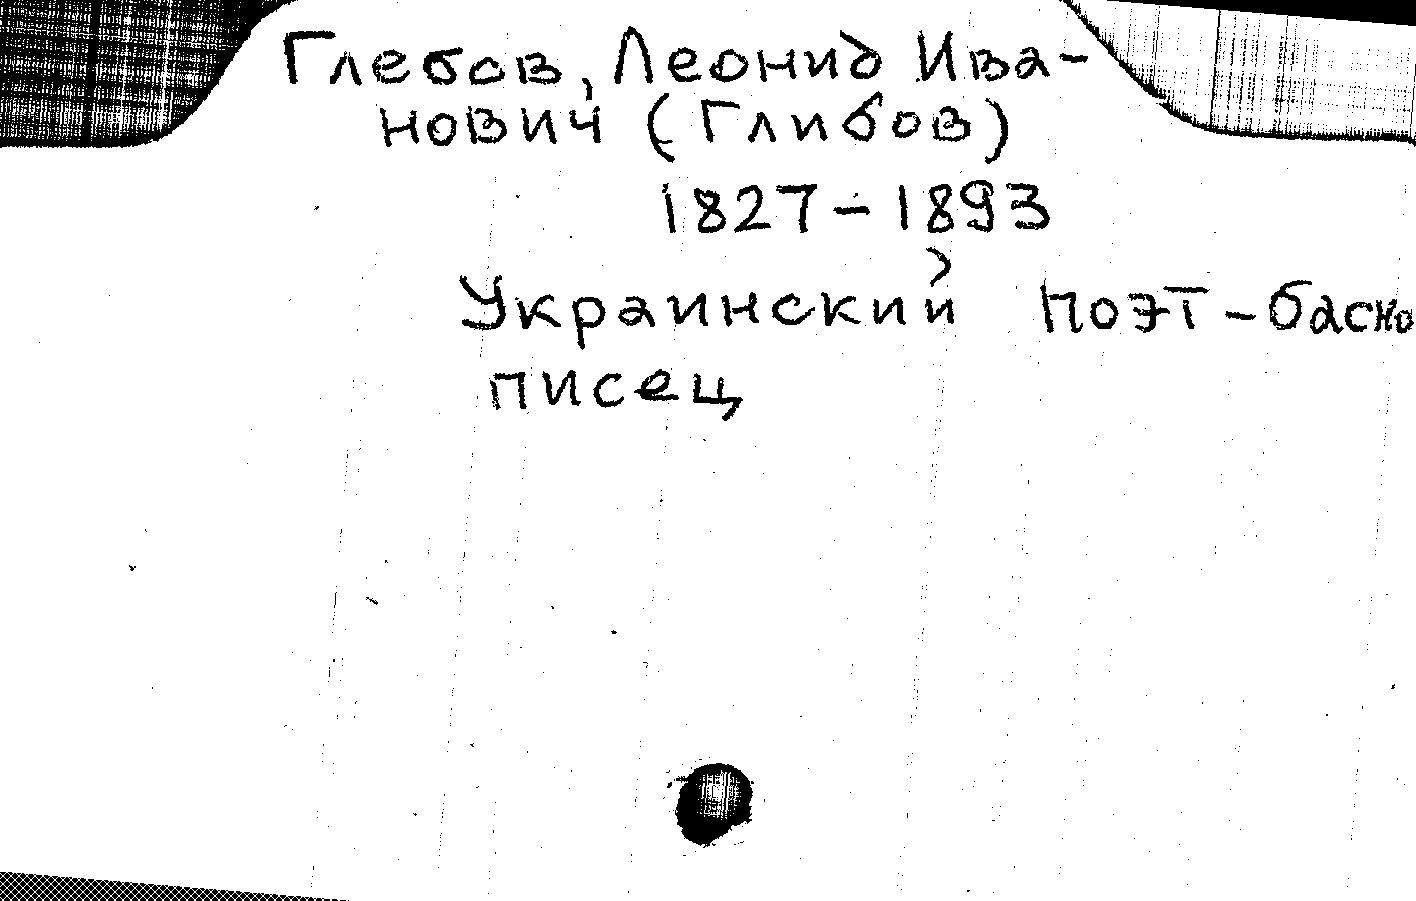 Глебов, Леонид Ива-
нович (Глибов)
1827-1893
Украинский поэт-басно
писец